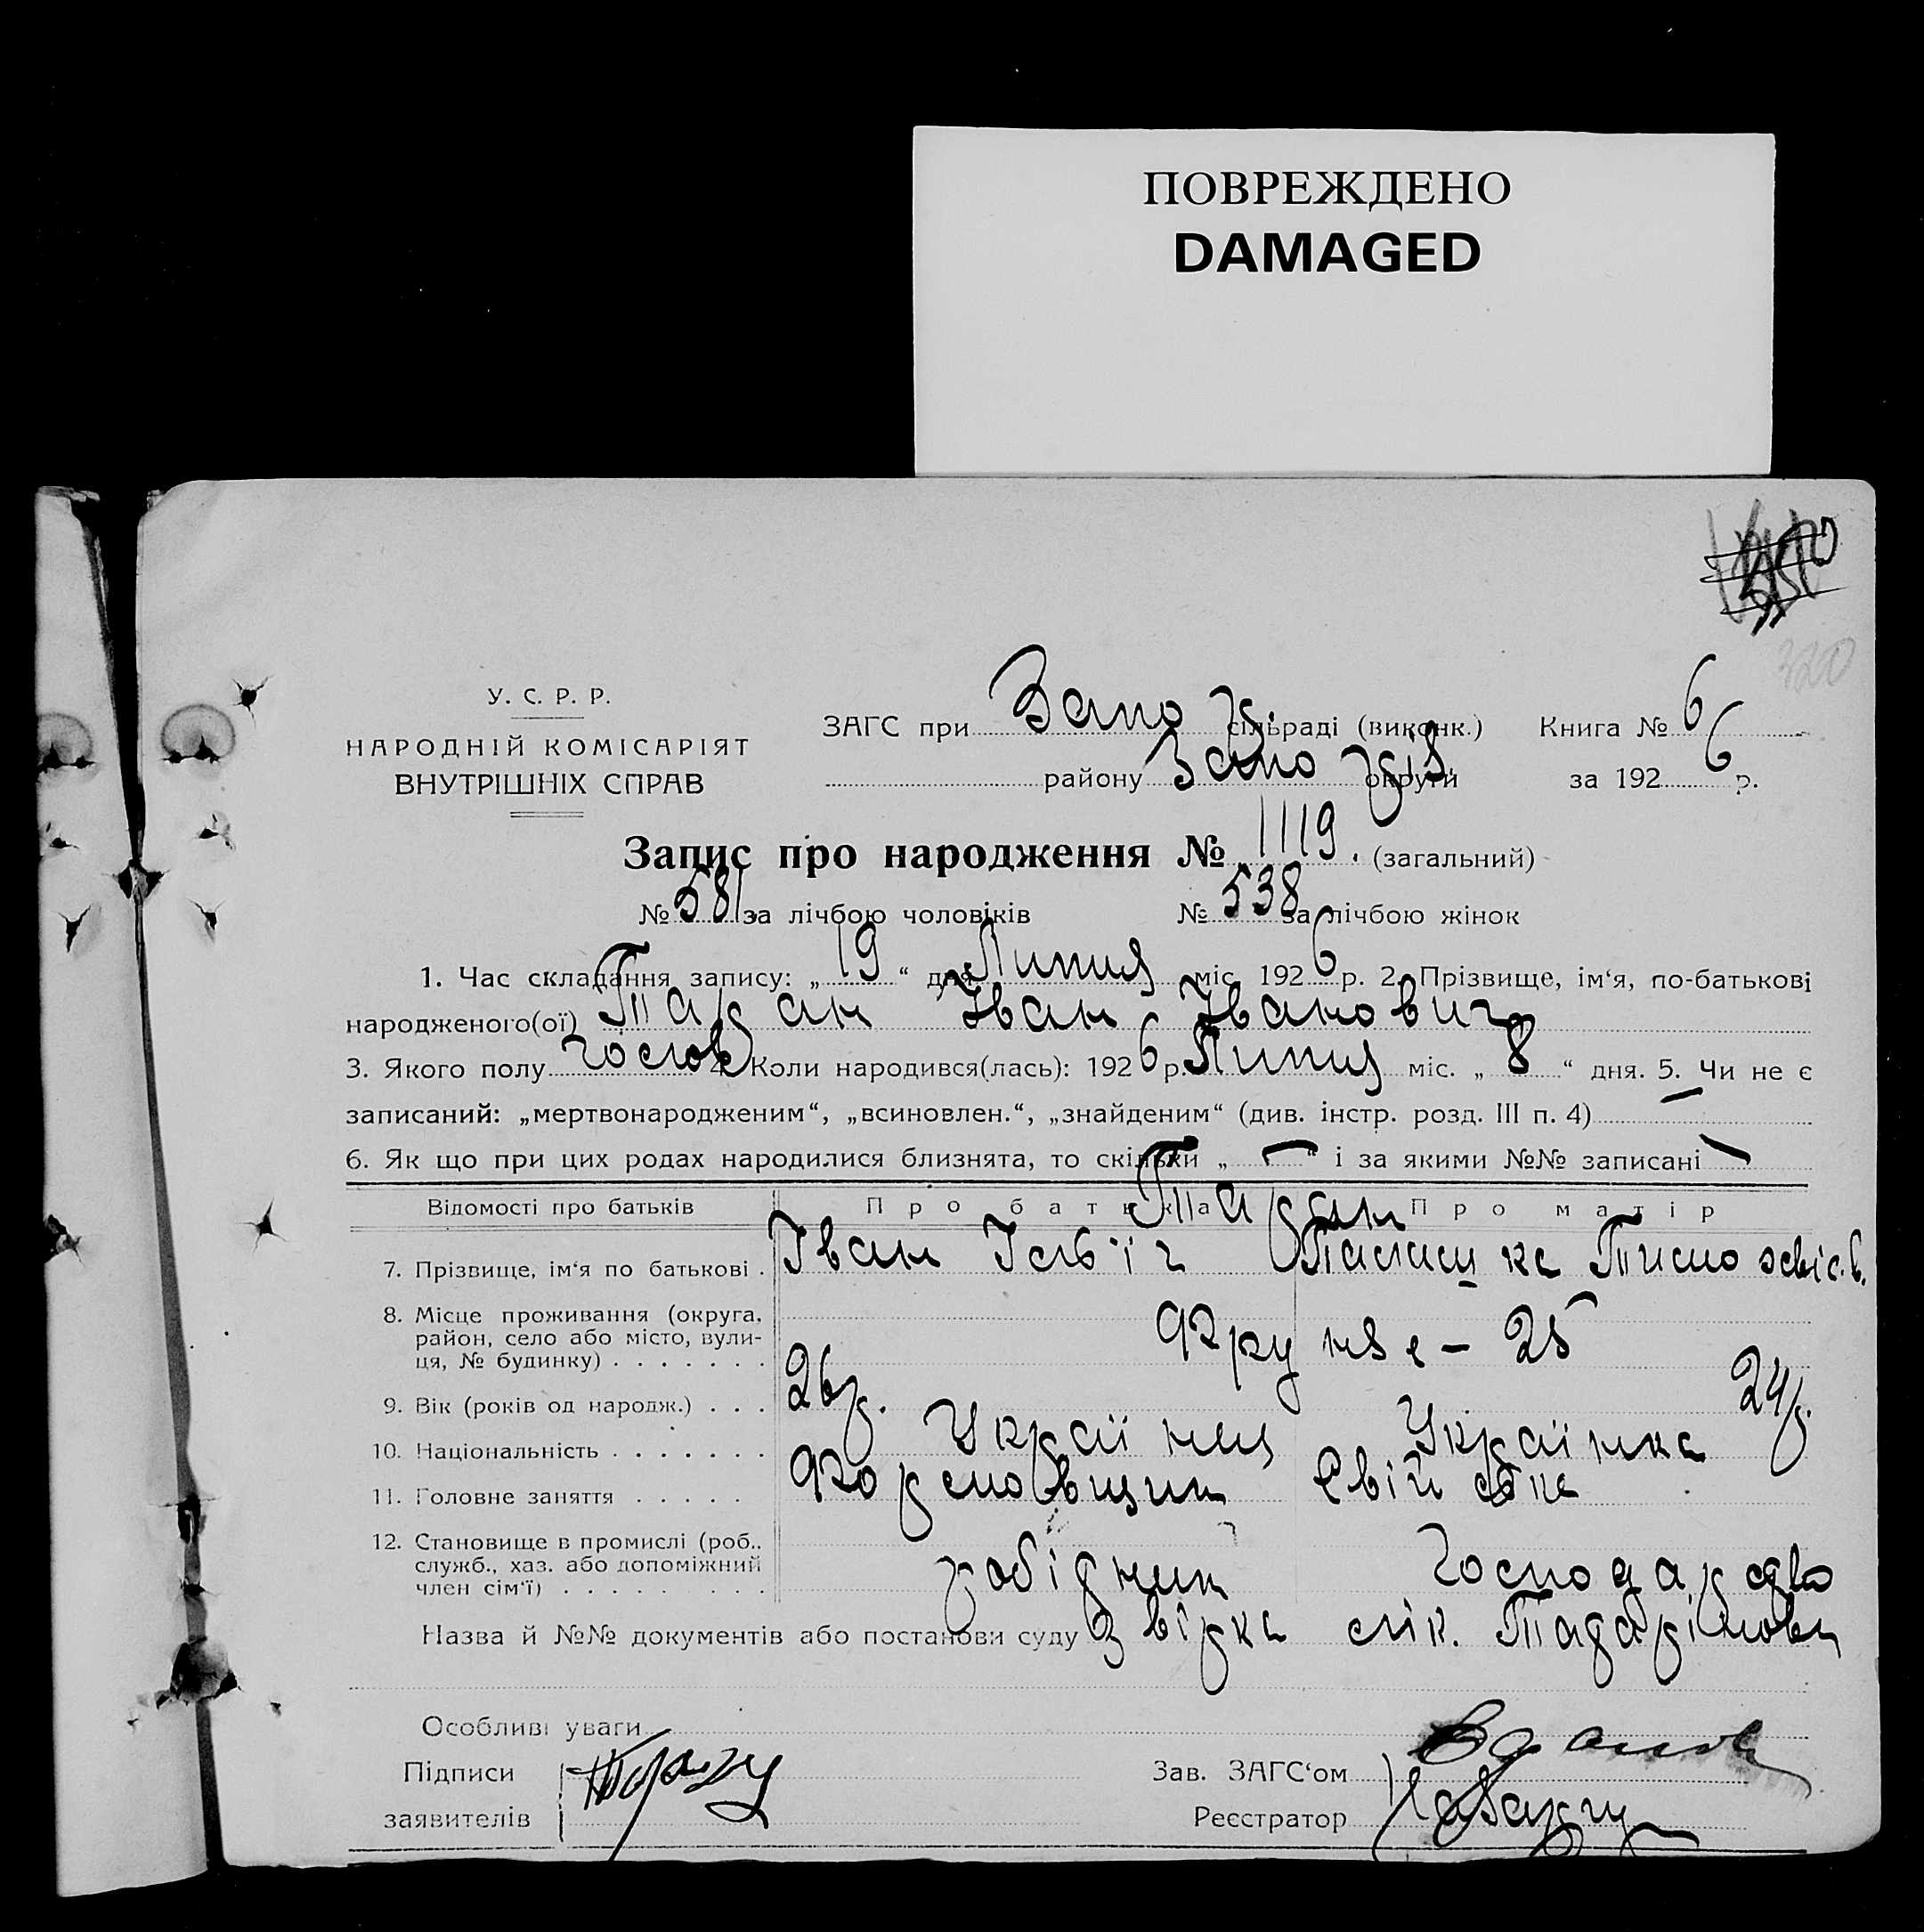 ПОВРЕЖДЕНО
DAMAGED
320
У. С. Р. Р.
НАРОДНІЙ КОМІСАРІЯТ
ВНУТРІШНІХ СПРАВ
ЗАГС при Запор. сільраді (виконк.) Книга № 6
району Запоріз. округи за 1926 р.
Запис про народження № 1119. (загальний)
№ 581 за лічбою чоловіків № 538 за лічбою жінок
1. Час складання запису: „19“ дня Липня міс. 1926 р. 2. Прізвище, ім‘я, по-батькові
народженого(ої) Таран Іван Іванович
3. Якого полу чолов 4. Коли народився(лась): 1926 р. Липня міс. „8“ дня. 5. Чи не є
записаний: „мертвонародженим“, „всиновлен.“, „знайденим“ (див. інстр. розд. III п. 4) —
6. Як що при цих родах народилися близнята, то скільки „—“ і за якими №№ записані —
Відомості про батьків Про батька Про матір
Таран
7. Прізвище, ім‘я по батькові . Іван Ілв'їч Палашка
8. Місце проживання (округа, район, село або місто, вулиця, № будинку) . . . . . . . Фрунзе — 25
9. Вік (років од народж.) . . . 26 р. 24 р.
10. Національність . . . . . . . Українец Українка
11. Головне заняття . . . . . Формовщик
12. Становище в промислі (роб., служб., хаз. або допоміжний член сім‘ї) . . . . . . . . . робідник
Назва й №№ документів або постанови суду звірка
Особливі уваги
Підписи
заявителів
Зав. ЗАГС‘ом
Реєстратор